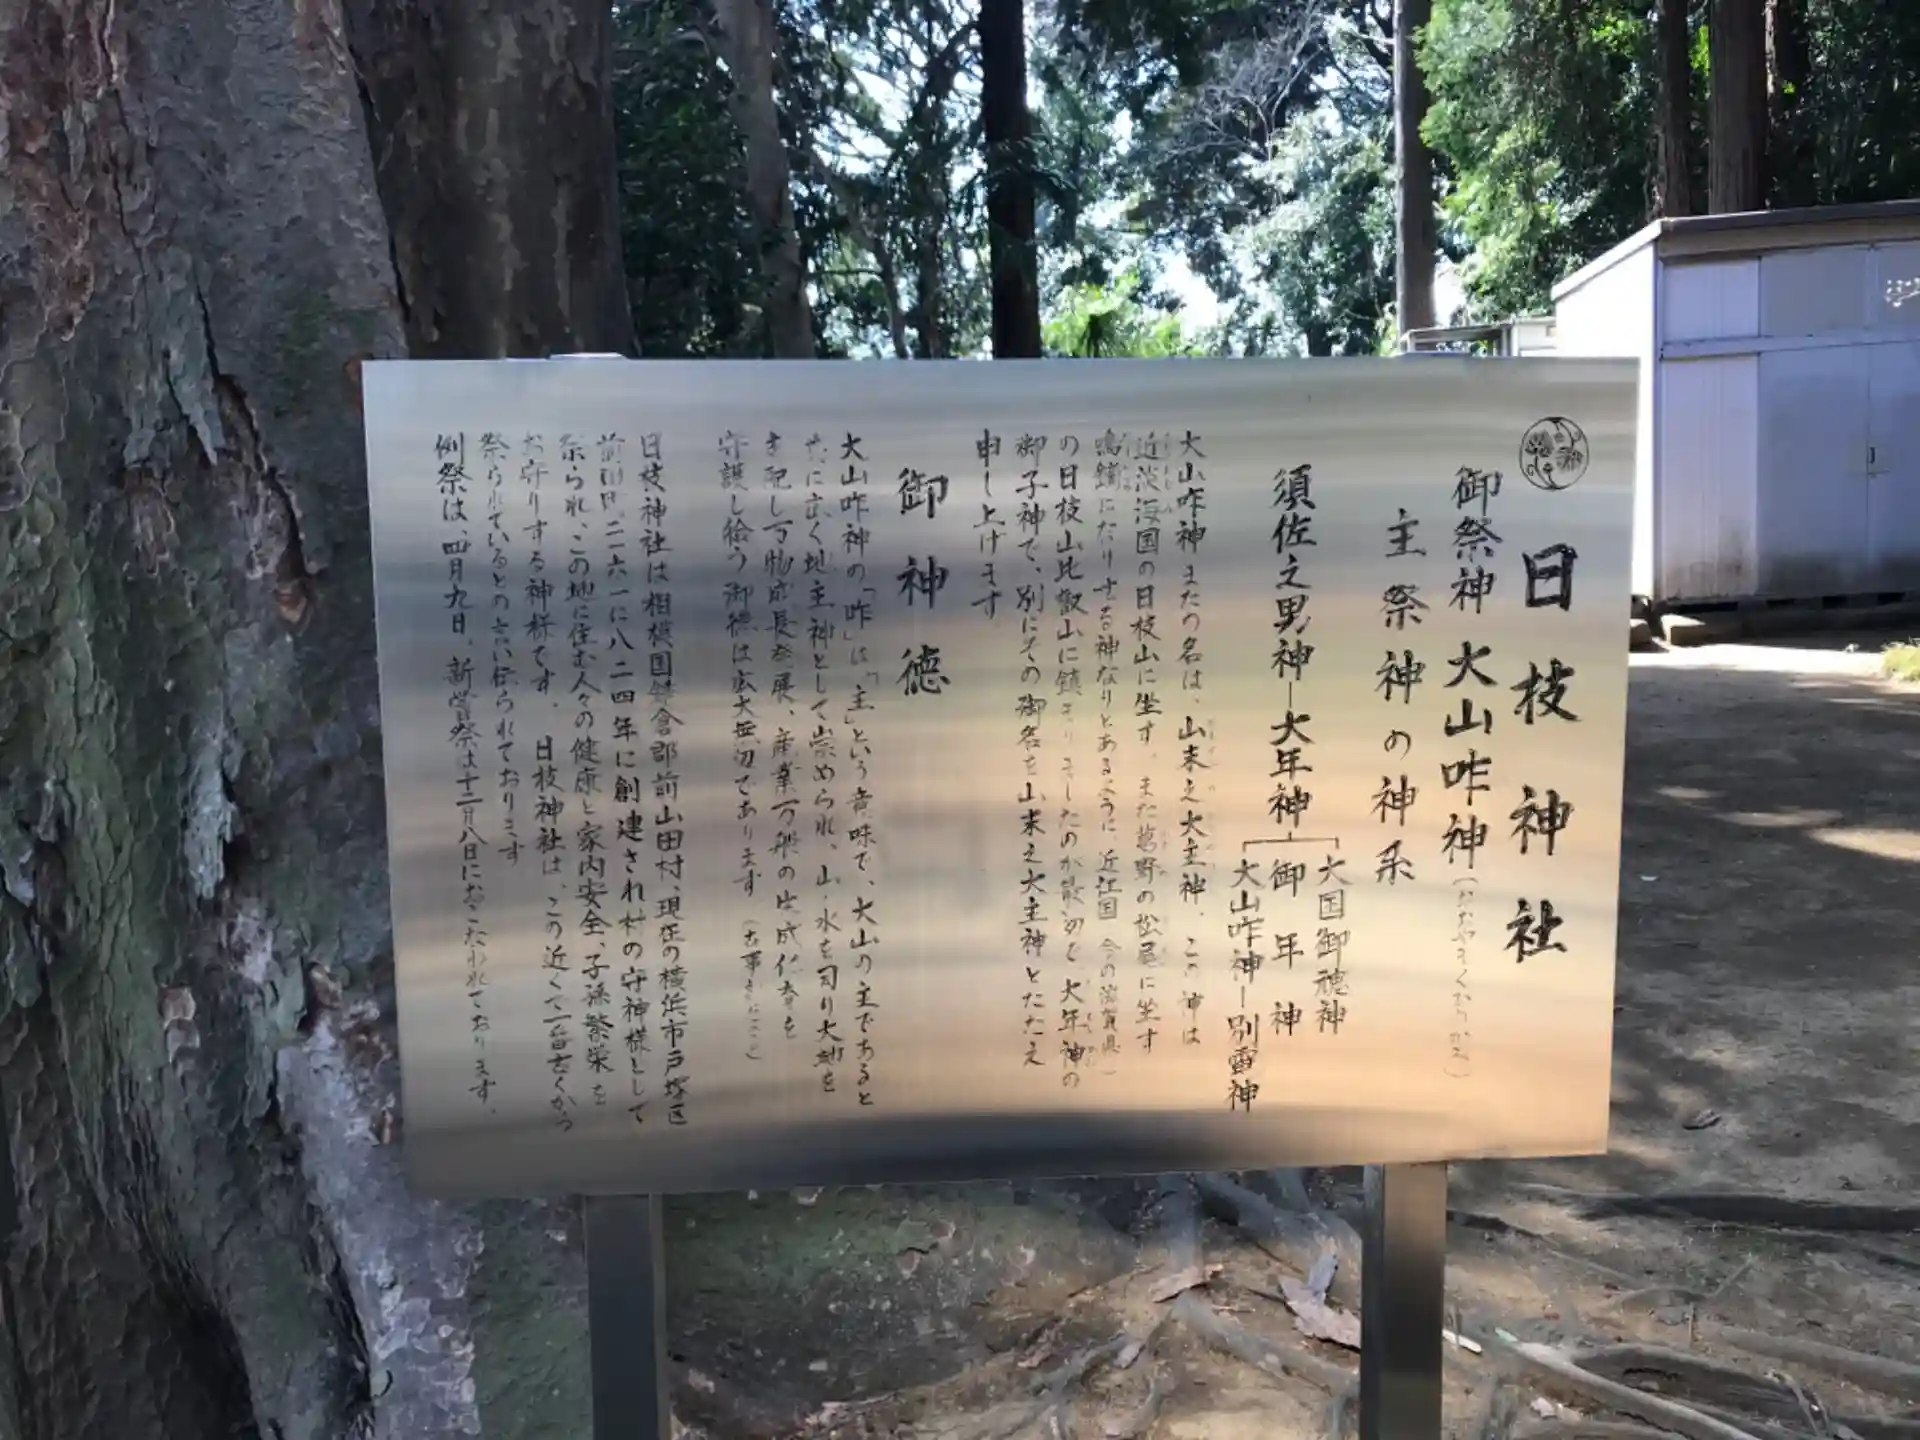 日枝神社
御祭神 大山咋神（おおやまくひのかみ）
主祭神の神系
須佐之男神―大年神
大国御魂神
御年神
大山咋神―別雷神
大山咋神またの名は、山末之大主神、この神は
近淡海国の日枝山に坐す。また葛野の松尾に坐す
鳴鏑になりする神なりとあるように、近江国（今の滋賀県）
の日枝山比叡山に鎮まりましたのが最初で、大年神の
御子神で、別にその御名を山末之大主神とたたえ
申し上げます
御神徳
大山咋神の「咋」は「主」という意味で、大山の主であると
共に広く地主神として崇められ、山・水を司り大地を
支配し万物成長発展、産業万般の生成化育を
守護し給う御徳は広大無辺であります（古事記による）
日枝神社は相模国鎌倉郡前山田村、現在の横浜市戸塚区
二六一に八二四年に創建され村の守神様として
祭られ、この地に住む人々の健康と家内安全、子孫繁栄を
お守りする神様です。日枝神社は、この近くで一番古くから
祭られているとの言い伝られております
例祭は、四月九日、新嘗祭は十二月八日におこなわれております。